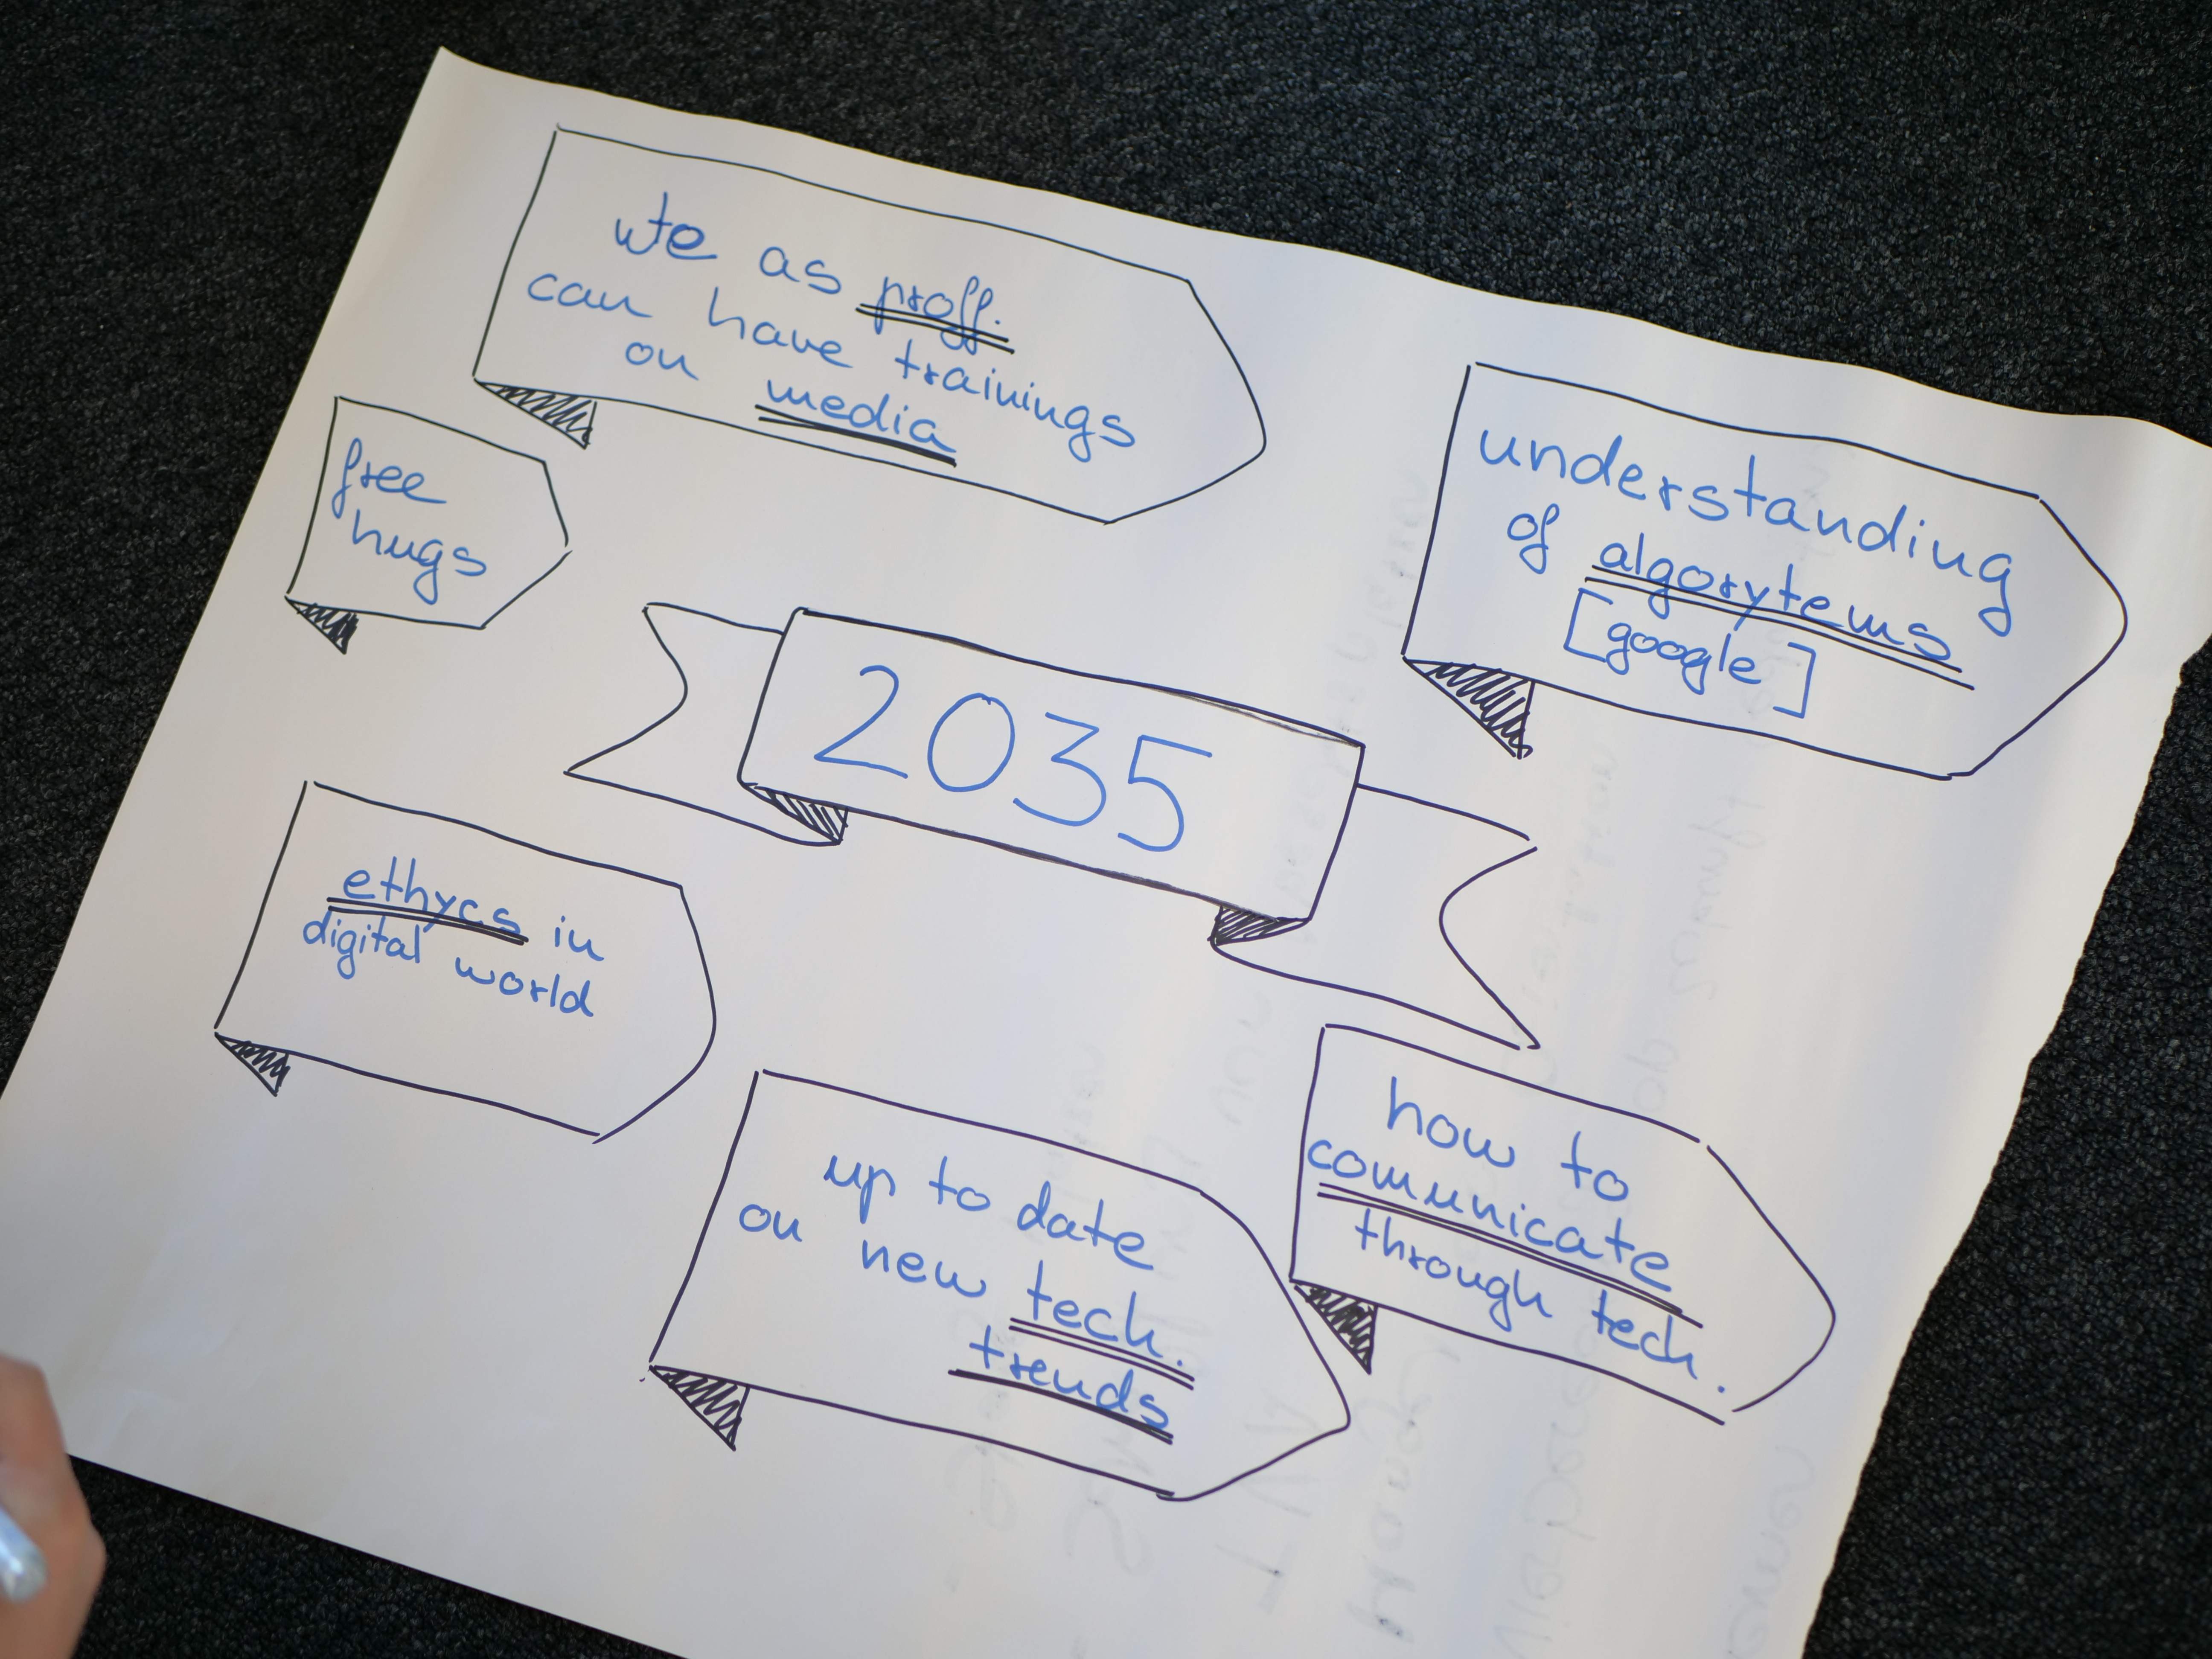 we as proff.
can have trainings
on media
free
hugs
understanding
of algorytems
[google]
2035
ethycs in
digital world
up to date
on new tech.
trends
how to
comunicate
through tech.